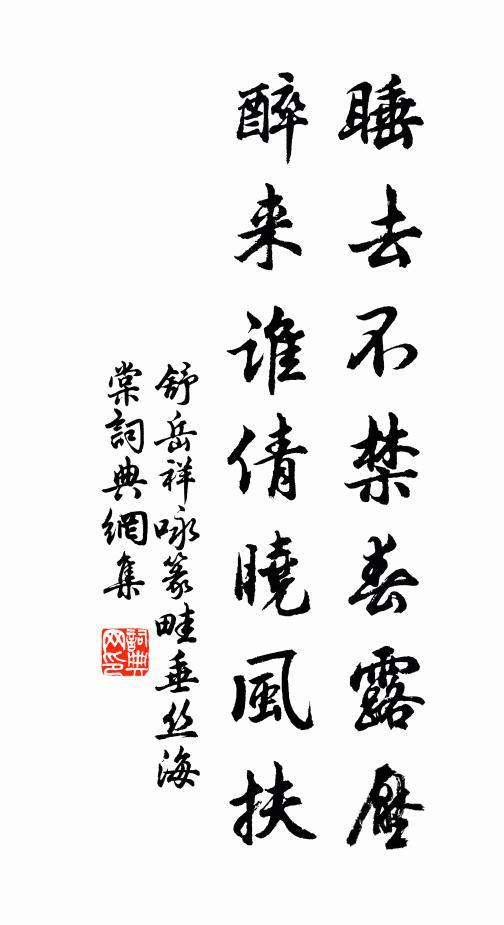 睡去不禁春露壓
醉来誰倩曉風扶
舒岳祥咏篆畦垂丝海
棠詞典網集
詞典
网印